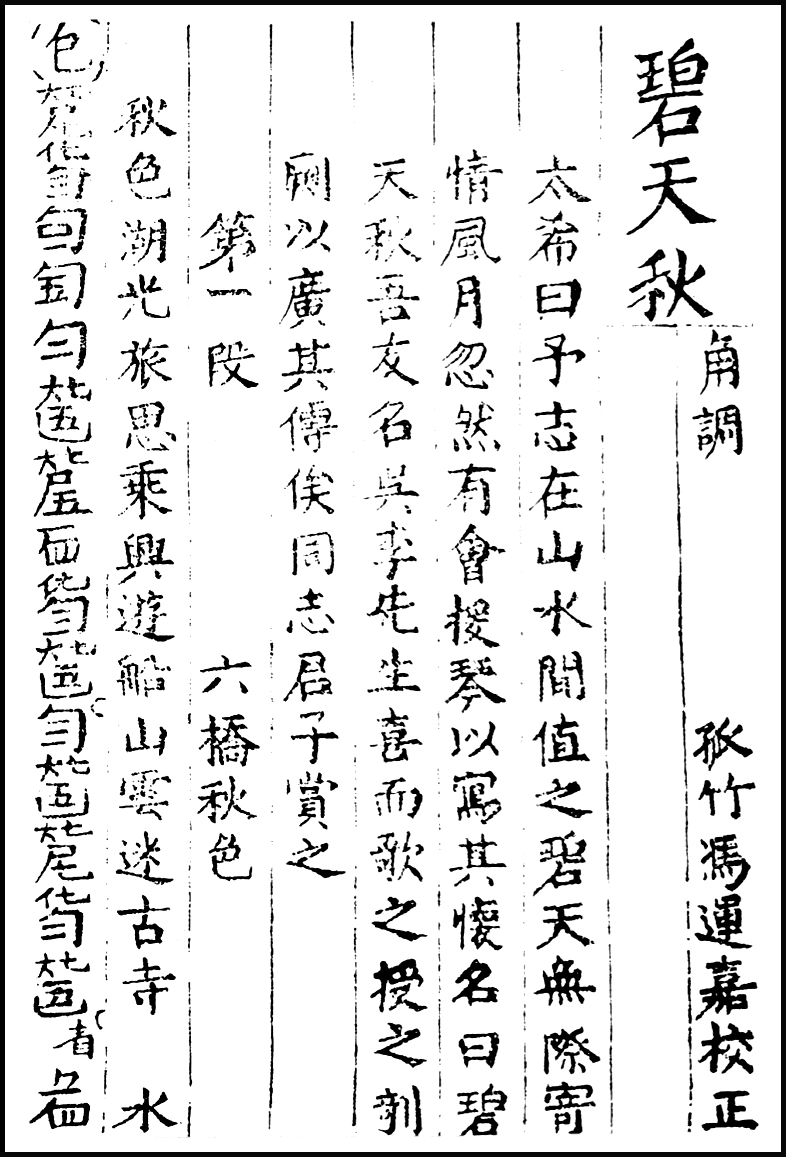 碧天秋
角調 孤竹馮運嘉校正
太希曰予志在山水間值之碧天無際寄
情風月忽然有會援琴以寫其懷名曰碧
天秋吾友名吳季先生喜而歌之授之剞
劂以廣其傳俟同志君子賞之
第一段 六橋秋色
秋色湖光旅思乘興遊船山雲迷古寺 水